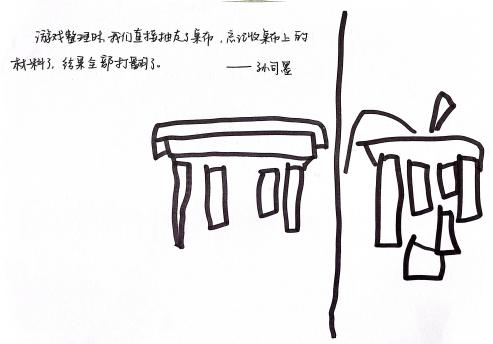 游戏整理时,我们直接抽走了桌布,忘记收桌布上的
材料了,结果全部打翻了。 ——孙可墨